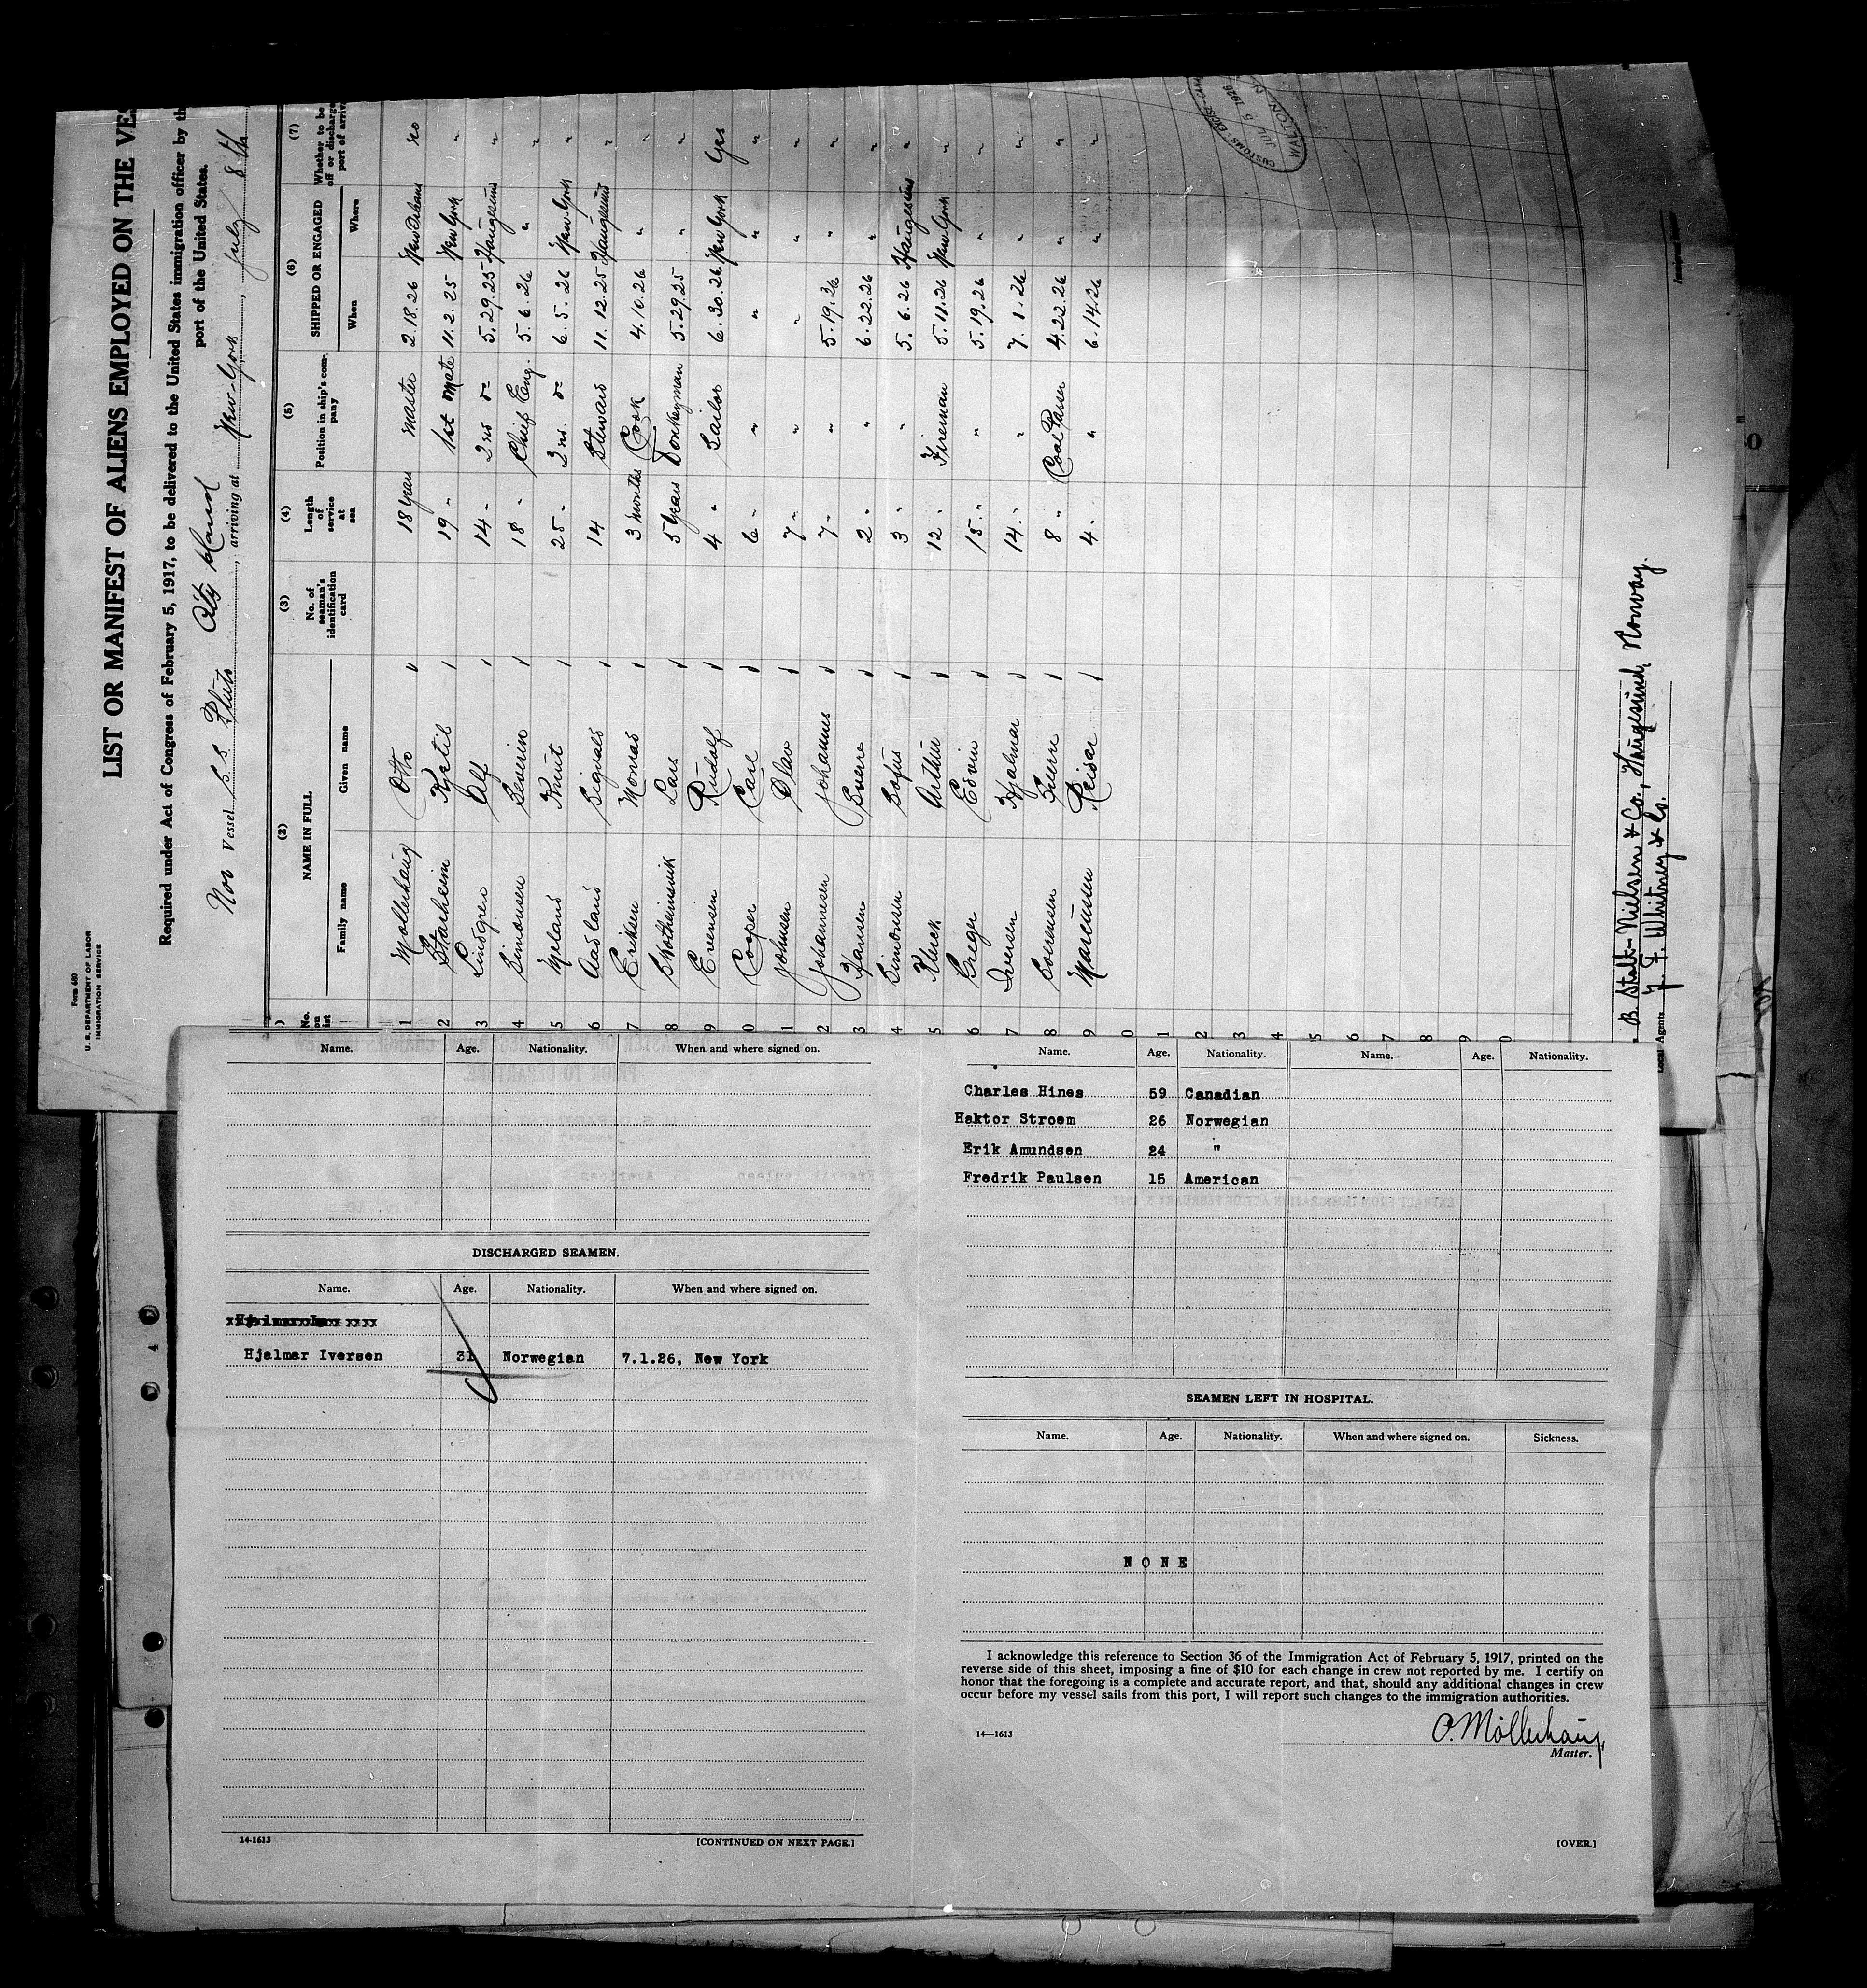 Form 680
U. S. DEPARTMENT OF LABOR
IMMIGRATION SERVICE
LIST OR MANIFEST OF ALIENS EMPLOYED ON THE VES
Required under Act of Congress of February 5, 1917, to be delivered to the United States immigration officer by th
port of the United States.
Nor Vessel S.S. Pluto, arriving at New-York, July 8th
(2) (3) (4) (5) (6) (7)
No. on list NAME IN FULL No. of seaman's identification card Length of service at sea Position in ship's company SHIPPED OR ENGAGED Whether to be off or discharge port of arriv
Family name Given name When Where
1 Mollerhaug Otto 18 years Master 2.18.26 New Orleans no
2 Starheim Kjetil 19 " 1st Mate 11.2.25 New York "
3 Lindgren Alf 14 " 2nd do 5.29.25 Haugesund "
4 Simonsen Severin 18 " Chief Eng. 5.6.26 " "
5 Meland Knut 25 " 2nd. do 6.5.26 New-York "
6 Aadland Sigvald 14 Steward 11.12.25 Haugesund "
7 Eriksen Monrad 3 months Cook 4.10.26 " "
8 Lars 5 years Donkeyman 5.29.25 " "
9 Evensen Rudolf 4 " Sailor 6.30.26 New York Yes
0 Cooper Carl 6 " " " " "
1 Johnsen Olav 7 " " " " "
2 Johannesen Johannes 7 " " 5.19.26 " "
3 Hansen Sverre 2 " " 6.22.26 " "
4 Simonsen Sofus 3 " " 5.6.26 Haugesund "
5 Kluck Arthur 12 " Fireman 5.11.26 New-York "
6 Greger Edvin 15 " " 5.19.26 " "
7 Iversen Hjalmar 14 " " 7.1.26 " "
8 Sverre 8 " Coal Passer 4.22.26 " "
9 Marcussen Reidar 4 " " 6.14.26 " "
0
1
2
3
4
5
6
7
8
9
0
B. Stolt-Nielsen & Co., Haugesund, Norway.
Local Agents J. F. Whitney & Co.
CUSTOMS
JUL 5 1926
WALTON
Name. Age. Nationality. When and where signed on.
DISCHARGED SEAMEN.
Name. Age. Nationality. When and where signed on.
Hjalmar Iversen 31 Norwegian 7.1.26, New York
14-1613 [CONTINUED ON NEXT PAGE.]
Name. Age. Nationality. Name. Age. Nationality.
Charles Hines 59 Canadian
Haktor Stroem 26 Norwegian
Erik Amundsen 24 "
Fredrik Paulsen 15 American
SEAMEN LEFT IN HOSPITAL.
Name. Age. Nationality. When and where signed on. Sickness.
NONE
I acknowledge this reference to Section 36 of the Immigration Act of February 5, 1917, printed on the
reverse side of this sheet, imposing a fine of $10 for each change in crew not reported by me. I certify on
honor that the foregoing is a complete and accurate report, and that, should any additional changes in crew
occur before my vessel sails from this port, I will report such changes to the immigration authorities.
14—1613
O. Möllerhaug
Master.
[OVER.]